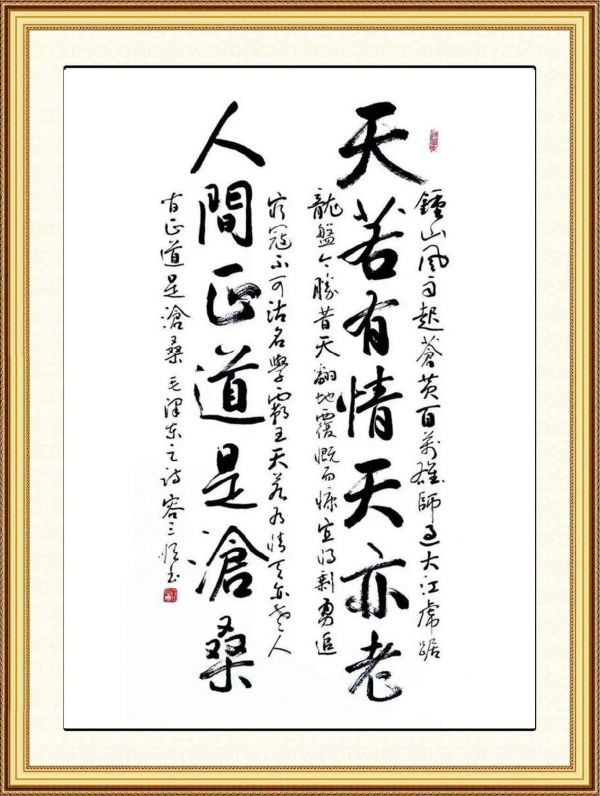 鍾山风雨起蒼黄百萬雄師过大江虎踞
天若有情天亦老
龍盤今勝昔天翻地覆慨而慷宜将剩勇追
窮寇不可沽名學霸王天若有情天亦老人
人間正道是滄桑
间正道是滄桑 毛泽东之诗